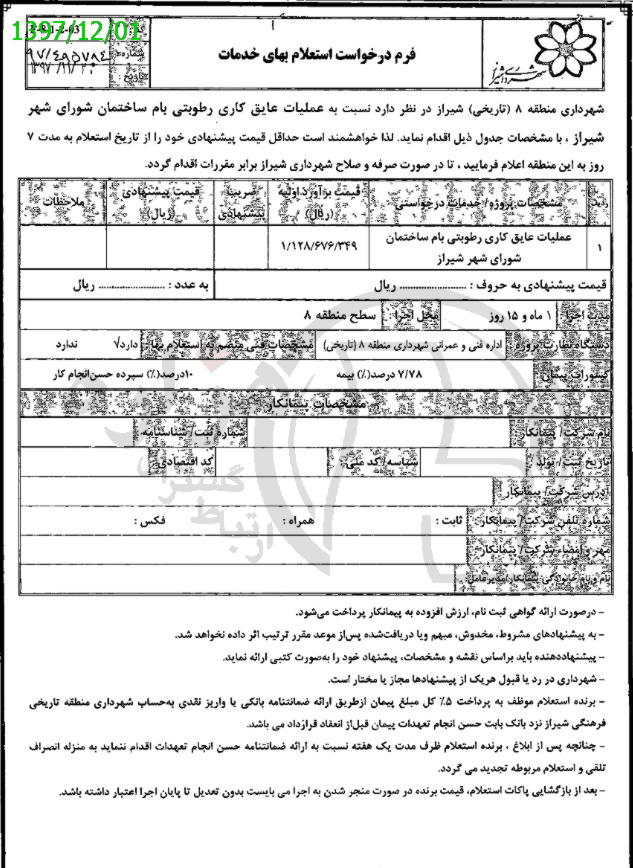 1397/12/01
فرم درخواست استعلام بهای خدمات
شهرداری منطقه ۸ (تاریخی) شیراز در نظر دارد نسبت به عملیات عایق کاری رطوبتی بام ساختمان شورای شهر
شیراز ، با مشخصات جدول ذیل اقدام نماید. لذا خواهشمند است حداقل قیمت پیشنهادی خود را از تاریخ استعلام به مدت ۷
روز به این منطقه اعلام فرمایید ، تا در صورت صرفه و صلاح شهرداری شیراز برابر مقررات اقدام گردد.
مشخصات پروژه/ خدمات درخواستی قیمت برآورد اولیه (ریال) ضریب پیشنهادی قیمت پیشنهادی (ریال) ملاحظات
۱ عملیات عایق کاری رطوبتی بام ساختمان ۱/۱۲۸/۶۷۶/۳۴۹
شورای شهر شیراز
قیمت پیشنهادی به حروف : ........................ ریال به عدد : ........................ ریال
مدت اجرا: ۱ ماه و ۱۵ روز محل اجرا : سطح منطقه ۸
دستگاه نظارت پروژه : اداره فنی و عمرانی شهرداری منطقه ۸ (تاریخی) مشخصات فنی منضم به استعلام بها : دارد√ ندارد
کسورات پیمان ۷/۷۸ درصد(٪) بیمه ۱۰درصد(٪) سپرده حسن‌انجام کار
مشخصات پیمانکار
نام شرکت/ پیمانکار: شماره ثبت/ شناسنامه :
تاریخ ثبت/ تولد : شناسه/ کد ملی : کد اقتصادی:
آدرس شرکت/ پیمانکار:
شماره تلفن شرکت/ پیمانکار: ثابت : همراه : فکس :
مهر و امضاء شرکت/ پیمانکار:
نام و نام خانوادگی پیمانکار/مدیرعامل:
- درصورت ارائه گواهی ثبت نام، ارزش افزوده به پیمانکار پرداخت می‌شود.
- به پیشنهادهای مشروط، مخدوش، مبهم ویا دریافت‌شده پس‌از موعد مقرر ترتیب اثر داده نخواهد شد.
- پیشنهاددهنده باید براساس نقشه و مشخصات، پیشنهاد خود را به‌صورت کتبی ارائه نماید.
- شهرداری در رد یا قبول هریک از پیشنهادها مجاز یا مختار است.
- برنده استعلام موظف به پرداخت ۵٪ کل مبلغ پیمان ازطریق ارائه ضمانتنامه بانکی یا واریز نقدی به‌حساب شهرداری منطقه تاریخی
فرهنگی شیراز نزد بانک بابت حسن انجام تعهدات پیمان قبل‌از انعقاد قرارداد می باشد.
- چنانچه پس از ابلاغ ، برنده استعلام ظرف مدت یک هفته نسبت به ارائه ضمانتنامه حسن انجام تعهدات اقدام ننماید به منزله انصراف
تلقی و استعلام مربوطه تجدید می گردد.
- بعد از بازگشایی پاکات استعلام، قیمت برنده در صورت منجر شدن به اجرا می بایست بدون تعدیل تا پایان اجرا اعتبار داشته باشد.